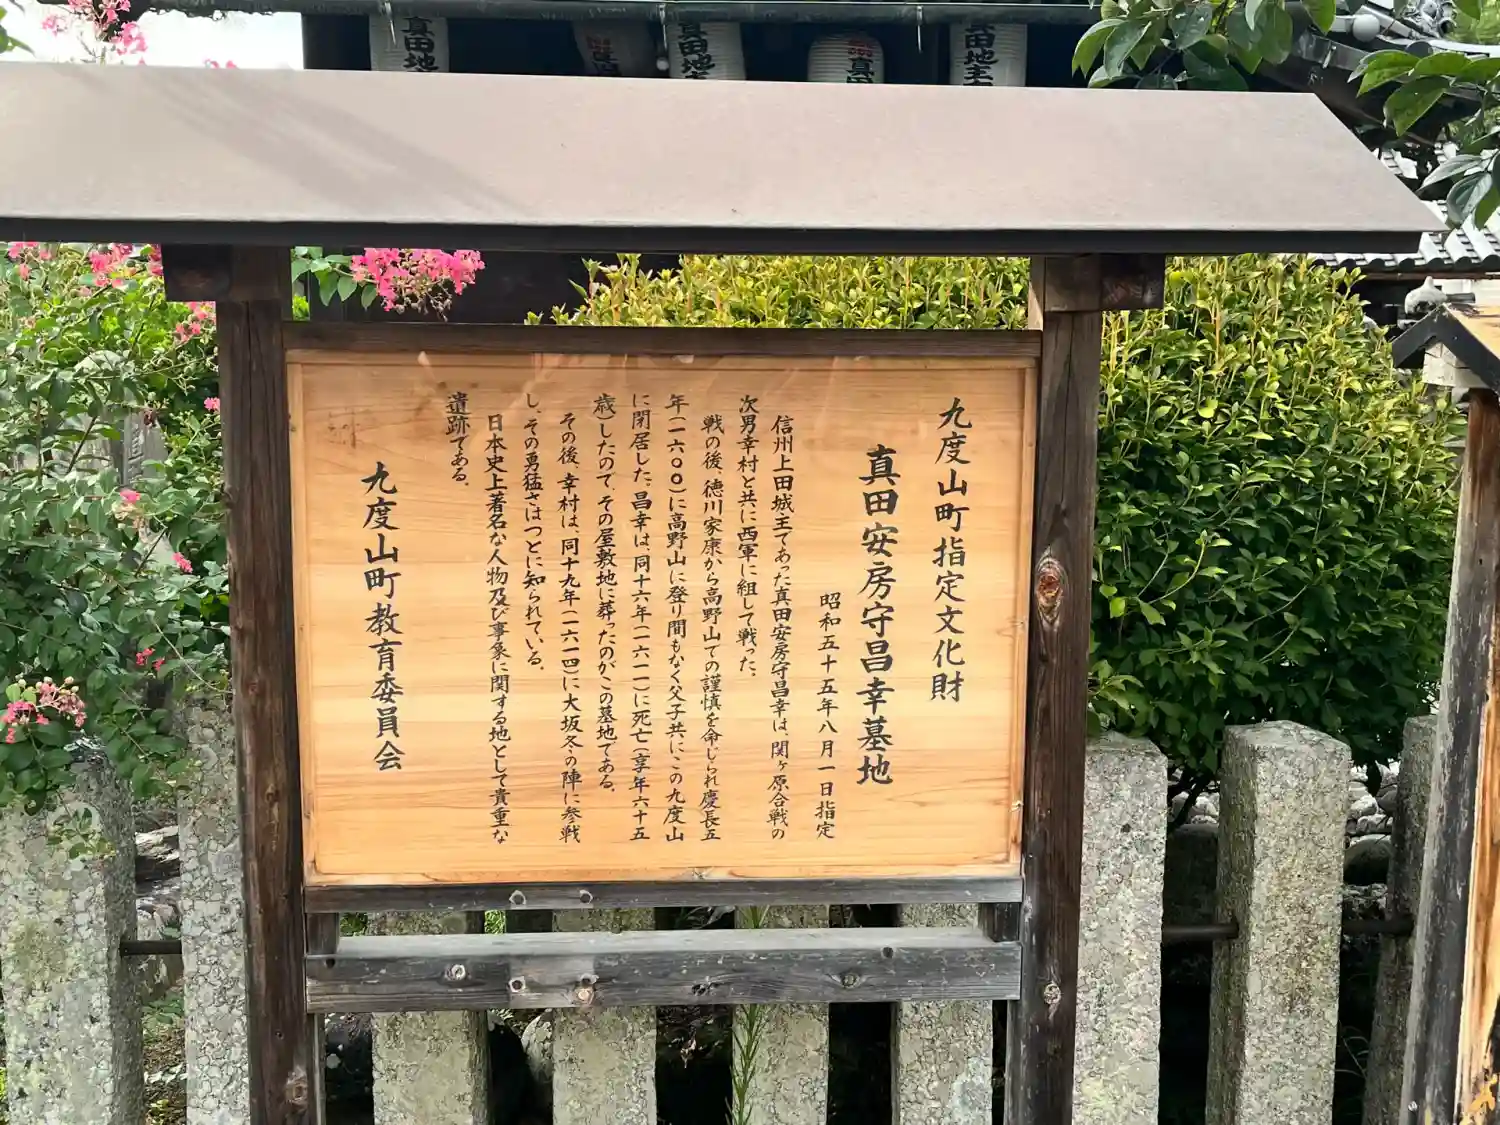 九度山町指定文化財
真田安房守昌幸墓地
昭和五十五年八月一日指定
信州上田城主であった真田安房守昌幸は、関ヶ原合戦の
次男幸村と共に西軍に組して戦った。
戦の後、徳川家康から高野山での謹慎を命じられ慶長五
年(一六〇〇)に高野山に登り間もなく父子共に、この九度山
に閉居した。昌幸は、同十六年(一六一一)に死亡(享年六十五
歳)したので、その屋敷地に葬ったのがこの墓地である。
その後、幸村は、同十九年(一六一四)に大坂冬の陣に参戦
し、その勇猛さはつとに知られている。
日本史上著名な人物及び事象に関する地として貴重な
遺跡である。
九度山町教育委員会
真田地
真田地主
真田
真田地主